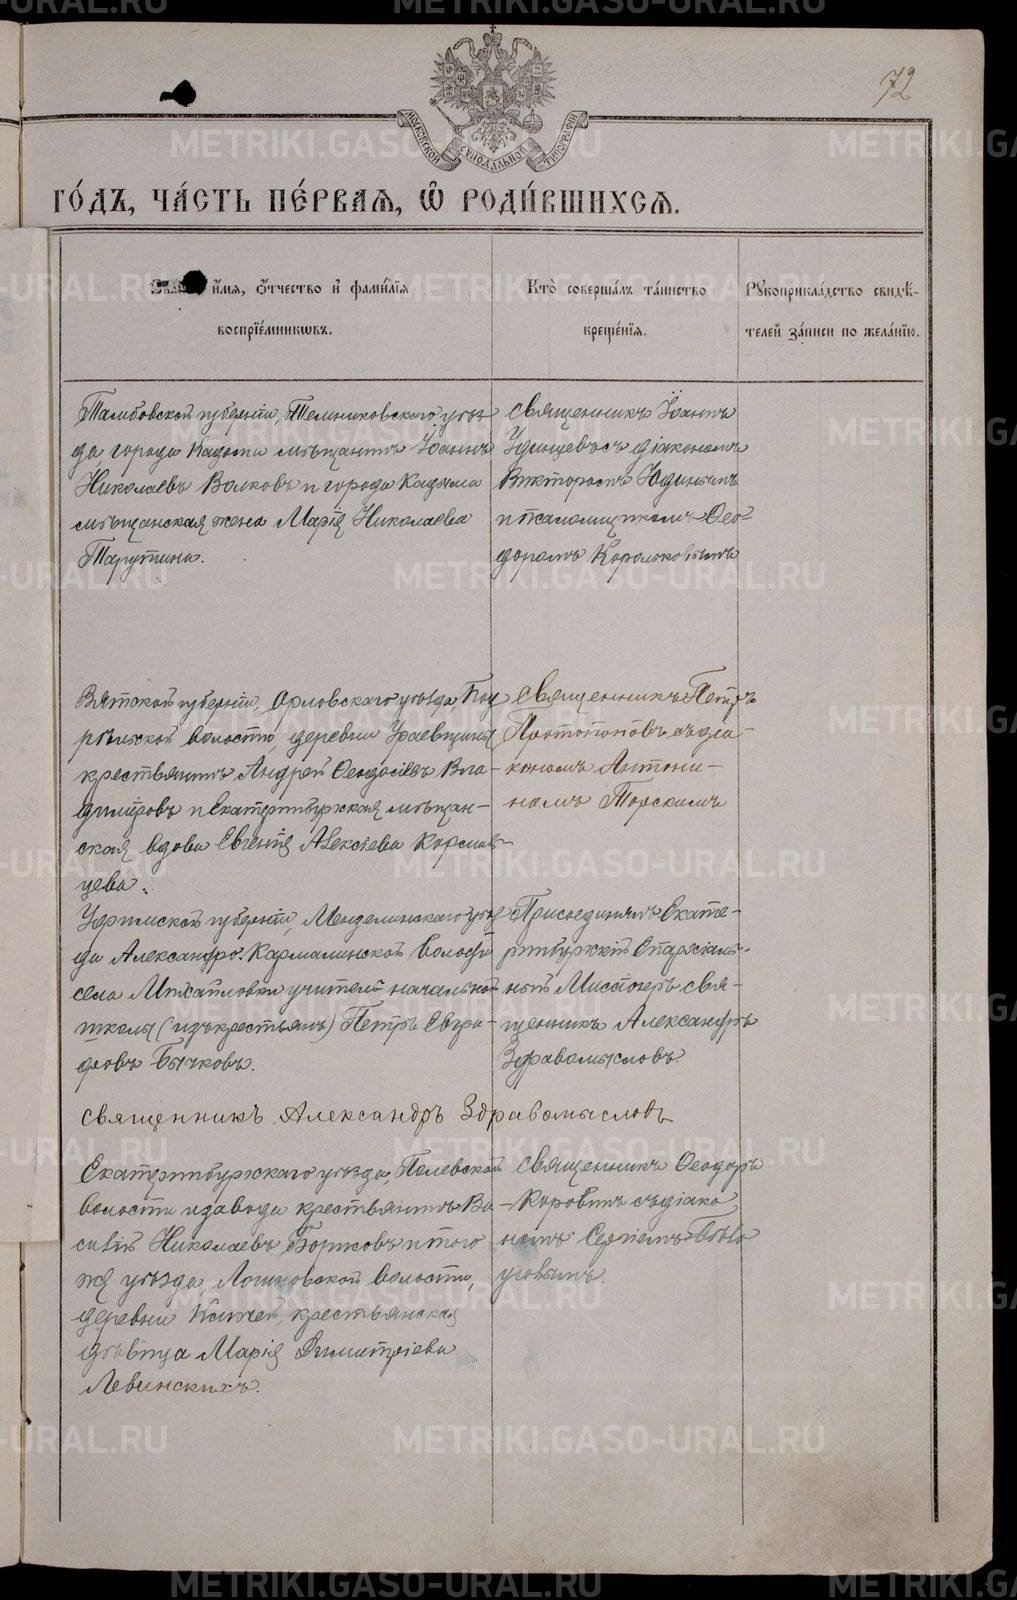 72
МОСКОВСКОЙ СУНОДАЛЬНОЙ ТИПОГРАФИИ
ГО́ДЪ, ЧА́СТЬ ПЕ́РВАѦ, Ѡ҆ РОДИ́ВШИХСѦ.
и҆́мѧ, ѻ҆́тчество и҆ фами́лїѧ
воспрїе́мникѡвъ.
Кто̀ соверша́лъ та́инство
креще́нїѧ.
Рꙋкоприкла́дство свидѣ́-
телей за́писи по жела́нїю.
Тамбовской губернiи, Темниковскаго уѣз-
да города Кадома мѣщанинъ Iоаннъ
Николаевъ Волковъ и города Кадома
мѣщанская жена Марiя Николаева
Тарутина.
Священникъ Iоаннъ
Удинцевъ съ дiакономъ
Викторомъ Юдинымъ
и псаломщикомъ Ѳео-
доромъ Корольковымъ
Вятской губернiи, Орловскаго уѣзда,
волости, деревни
крестьянинъ Андрей Ѳеодосiевъ Вла-
димiровъ и Екатеринбургская мѣщан-
ская вдова Евгенiя Алексiева Кормиль-
цева.
Священникъ Петръ
Протопоповъ съ дiа-
кономъ Антони-
номъ Торскимъ
Уфимской губернiи, Мензелинскаго уѣз-
да Александро-Кармалинской волости
села Михайловки учитель начальной
школы (изъ крестьянъ) Петръ Евгра-
фовъ Бычковъ.
Присоединялъ Екате-
ринбургскiй Епархiаль-
ный Миссiонеръ свя-
щенникъ Александръ
Здравомысловъ.
Священникъ Александръ Здравомысловъ
Екатеринбургскаго уѣзда, Полевской
волости и завода крестьянинъ Ва-
силiй Николаевъ Бортковъ и того
же уѣзда, волости,
деревни крестьянская
дѣвица Марiя Димитрiева
Левинскихъ.
Священникъ Ѳеодоръ
Коровинъ съ дiако
номъ Сергiемъ Бѣло
усовымъ.
METRIKI.GASO-URAL.RU